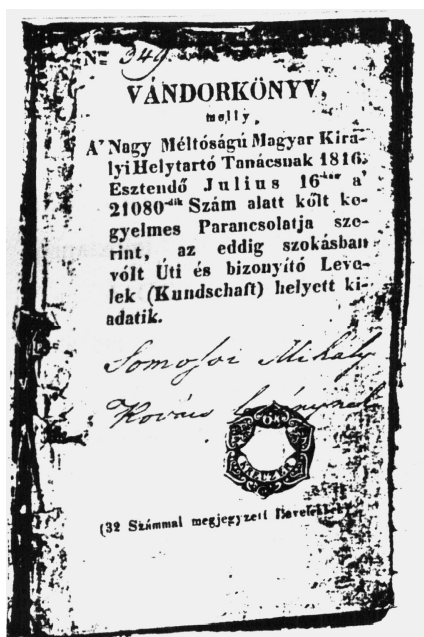 No 349
VÁNDORKÖNYV,
melly,
A' Nagy Méltóságú Magyar Kirá-
lyi Helytartó Tanácsnak 1816.
Esztendő Julius 16-kán a'
21080-dik Szám alatt költ ke-
gyelmes Parancsolatja sze-
rint, az eddig szokásban
vólt Úti és bizonyító Leve-
lek (Kundschaft) helyett ki-
adatik.
Somosvi Mihály
Kovács Legénynek
(32 Számmal megjegyzett